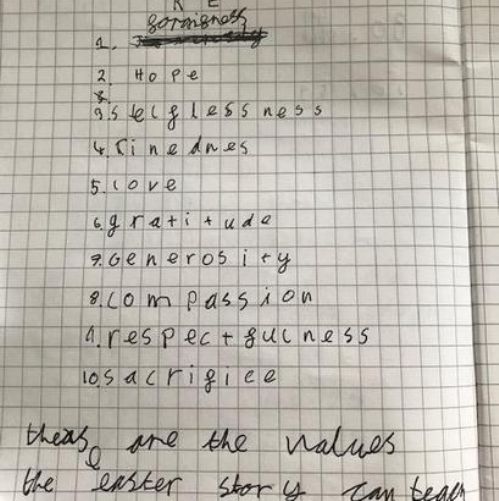 R E
1. gorgisness
2. Hope
3. selglessness
4. Kinednes
5. love
6. gratitude
7. Generosity
8. Compassion
9. respectgulness
10. Sacrigice
thease are the values
the easter story can teach